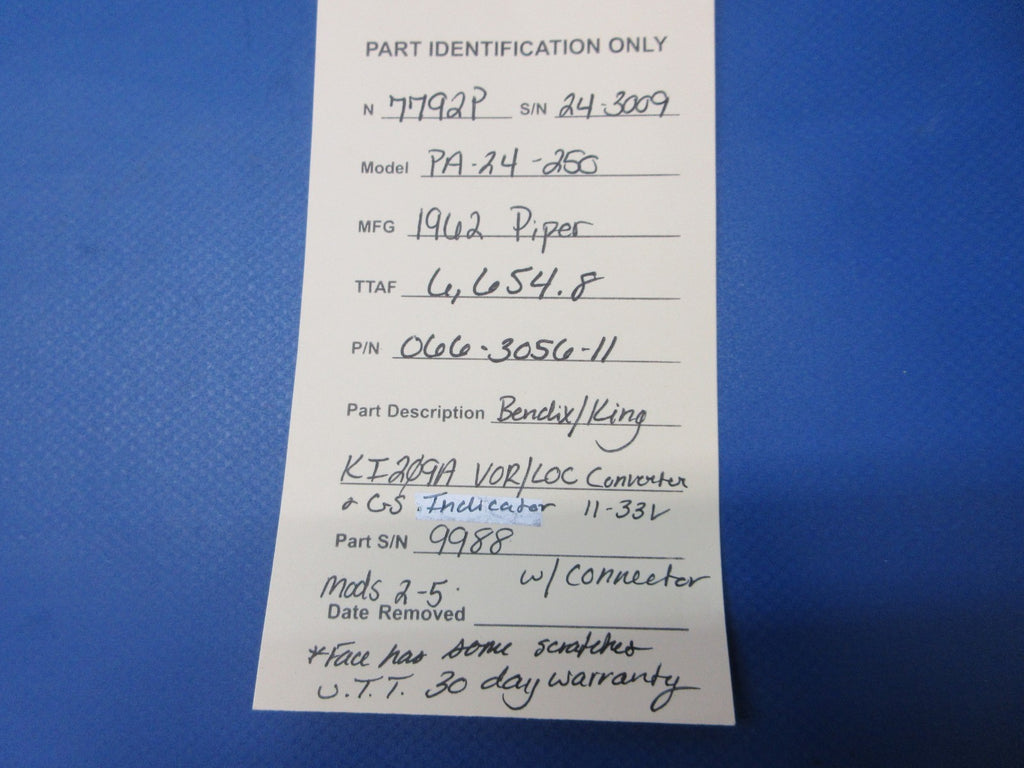 PART IDENTIFICATION ONLY
N 7792P S/N 24-3009
Model PA-24-250
MFG 1962 Piper
TTAF 6,654.8
P/N 066-3056-11
Part Description Bendix/King
KI209A VOR/LOC Converter
& GS Indicator 11-33V
Part S/N 9988
Mods 2-5. w/ connector
Date Removed
*Face has some scratches
U.T.T. 30 day warranty